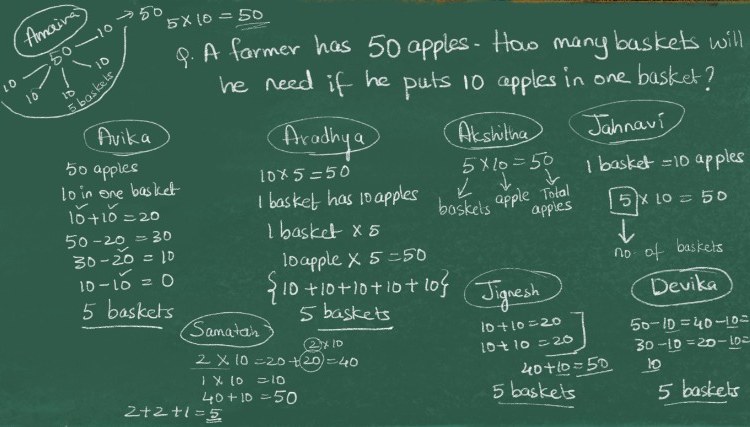 Amaira
50
10
10
10
10
10
5 baskets
→ 50
5 × 10 = 50
Q. A farmer has 50 apples. How many baskets will
he need if he puts 10 apples in one basket?
Avika
50 apples
10 in one basket
10 + 10 = 20
50 - 20 = 30
30 - 20 = 10
10 - 10 = 0
5 baskets
Aradhya
10 × 5 = 50
1 basket has 10 apples
1 basket × 5
10 apple × 5 = 50
{10 + 10 + 10 + 10 + 10}
5 baskets
Akshitha
5 × 10 = 50
baskets apple Total
apples
Jahnavi
1 basket = 10 apples
5 × 10 = 50
no of baskets
Samatah
2 × 10
2 × 10 = 20 + 20 = 40
1 × 10 = 10
40 + 10 = 50
2 + 2 + 1 = 5
Jignesh
10 + 10 = 20
10 + 10 = 20
40 + 10 = 50
5 baskets
Devika
50 - 10 = 40 - 10 =
30 - 10 = 20 - 10 =
10
5 baskets